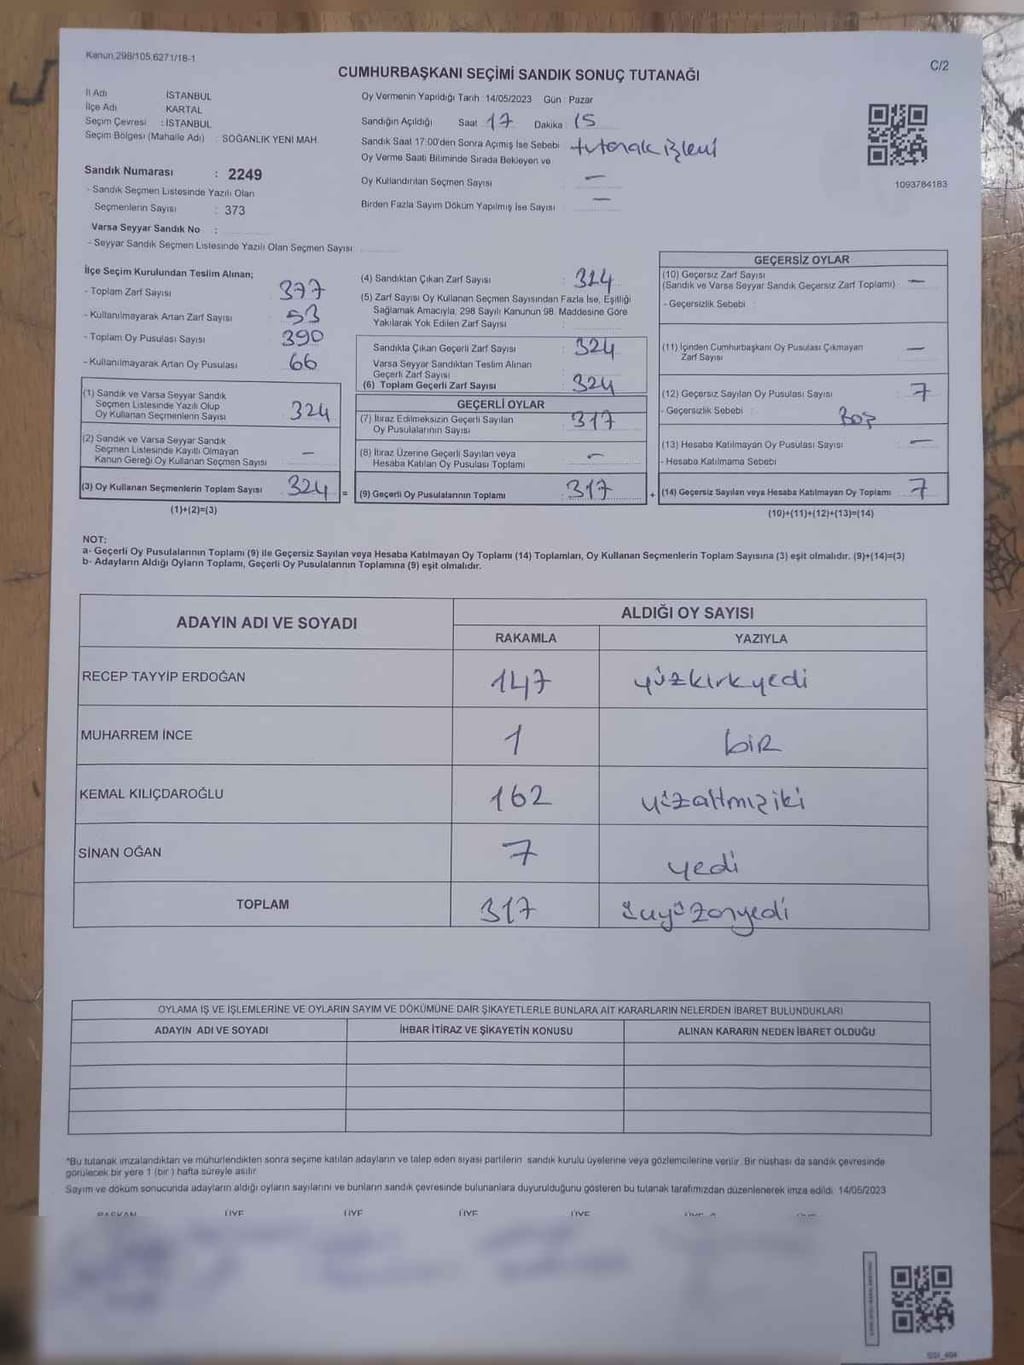 Kanun.298/105.6271/18-1
C/2
CUMHURBAŞKANI SEÇİMİ SANDIK SONUÇ TUTANAĞI
İl Adı İSTANBUL
İlçe Adı KARTAL
Seçim Çevresi : İSTANBUL
Seçim Bölgesi (Mahalle Adı) : SOĞANLIK YENİ MAH.
Sandık Numarası : 2249
- Sandık Seçmen Listesinde Yazılı Olan
Seçmenlerin Sayısı : 373
Varsa Seyyar Sandık No :
- Seyyar Sandık Seçmen Listesinde Yazılı Olan Seçmen Sayısı
Oy Vermenin Yapıldığı Tarih :14/05/2023 Gün : Pazar
Sandığın Açıldığı Saat 17 Dakika : 15
Sandık Saat 17:00'den Sonra Açımış İse Sebebi tutanak işleri
Oy Verme Saati Bitiminde Sırada Bekleyen ve
Oy Kullandırılan Seçmen Sayısı : —
Birden Fazla Sayım Döküm Yapılmış İse Sayısı : —
1093784183
İlçe Seçim Kurulundan Teslim Alınan;
- Toplam Zarf Sayısı : 377
- Kullanılmayarak Artan Zarf Sayısı : 53
- Toplam Oy Pusulası Sayısı : 390
- Kullanılmayarak Artan Oy Pusulası : 66
(1) Sandık ve Varsa Seyyar Sandık
Seçmen Listesinde Yazılı Olup
Oy Kullanan Seçmenlerin Sayısı : 324
(2) Sandık ve Varsa Seyyar Sandık
Seçmen Listesinde Kayıtlı Olmayan
Kanun Gereği Oy Kullanan Seçmen Sayısı : —
(3) Oy Kullanan Seçmenlerin Toplam Sayısı : 324 =
(1)+(2)=(3)
(4) Sandıktan Çıkan Zarf Sayısı : 324
(5) Zarf Sayısı Oy Kullanan Seçmen Sayısından Fazla İse, Eşitliği
Sağlamak Amacıyla, 298 Sayılı Kanunun 98. Maddesine Göre
Yakılarak Yok Edilen Zarf Sayısı :
Sandıkta Çıkan Geçerli Zarf Sayısı : 324
Varsa Seyyar Sandıktan Teslim Alınan
Geçerli Zarf Sayısı :
(6) Toplam Geçerli Zarf Sayısı : 324
GEÇERLİ OYLAR
(7) İtiraz Edilmeksizin Geçerli Sayılan
Oy Pusulalarının Sayısı : 317
(8) İtiraz Üzerine Geçerli Sayılan veya
Hesaba Katılan Oy Pusulası Toplamı : —
(9) Geçerli Oy Pusulalarının Toplamı : 317 +
GEÇERSİZ OYLAR
(10) Geçersiz Zarf Sayısı
(Sandık ve Varsa Seyyar Sandık Geçersiz Zarf Toplamı) : —
- Geçersizlik Sebebi :
(11) İçinden Cumhurbaşkanı Oy Pusulası Çıkmayan
Zarf Sayısı : —
(12) Geçersiz Sayılan Oy Pusulası Sayısı : 7
- Geçersizlik Sebebi : BOŞ
(13) Hesaba Katılmayan Oy Pusulası Sayısı : —
- Hesaba Katılmama Sebebi
(14) Geçersiz Sayılan veya Hesaba Katılmayan Oy Toplamı : 7
(10)+(11)+(12)+(13)=(14)
NOT:
a- Geçerli Oy Pusulalarının Toplamı (9) ile Geçersiz Sayılan veya Hesaba Katılmayan Oy Toplamı (14) Toplamları, Oy Kullanan Seçmenlerin Toplam Sayısına (3) eşit olmalıdır. (9)+(14)=(3)
b- Adayların Aldığı Oyların Toplamı, Geçerli Oy Pusulalarının Toplamına (9) eşit olmalıdır.
ADAYIN ADI VE SOYADI ALDIĞI OY SAYISI
RAKAMLA YAZIYLA
RECEP TAYYİP ERDOĞAN 147 yüzkırkyedi
MUHARREM İNCE 1 bir
KEMAL KILIÇDAROĞLU 162 yüzaltmışiki
SİNAN OĞAN 7 yedi
TOPLAM 317 üçyüzonyedi
OYLAMA İŞ VE İŞLEMLERİNE VE OYLARIN SAYIM VE DÖKÜMÜNE DAİR ŞİKAYETLERLE BUNLARA AİT KARARLARIN NELERDEN İBARET BULUNDUKLARI
ADAYIN ADI VE SOYADI İHBAR İTİRAZ VE ŞİKAYETİN KONUSU ALINAN KARARIN NEDEN İBARET OLDUĞU
*Bu tutanak imzalandıktan ve mühürlendikten sonra seçime katılan adayların ve talep eden siyasi partilerin sandık kurulu üyelerine veya gözlemcilerine verilir. Bir nüshası da sandık çevresinde
görülecek bir yere 1 (bir ) hafta süreyle asılır.
Sayım ve döküm sonucunda adayların aldığı oyların sayılarını ve bunların sandık çevresinde bulunanlara duyurulduğunu gösteren bu tutanak tarafımızdan düzenlenerek imza edildi. 14/05/2023
BAŞKAN ÜYE ÜYE ÜYE ÜYE